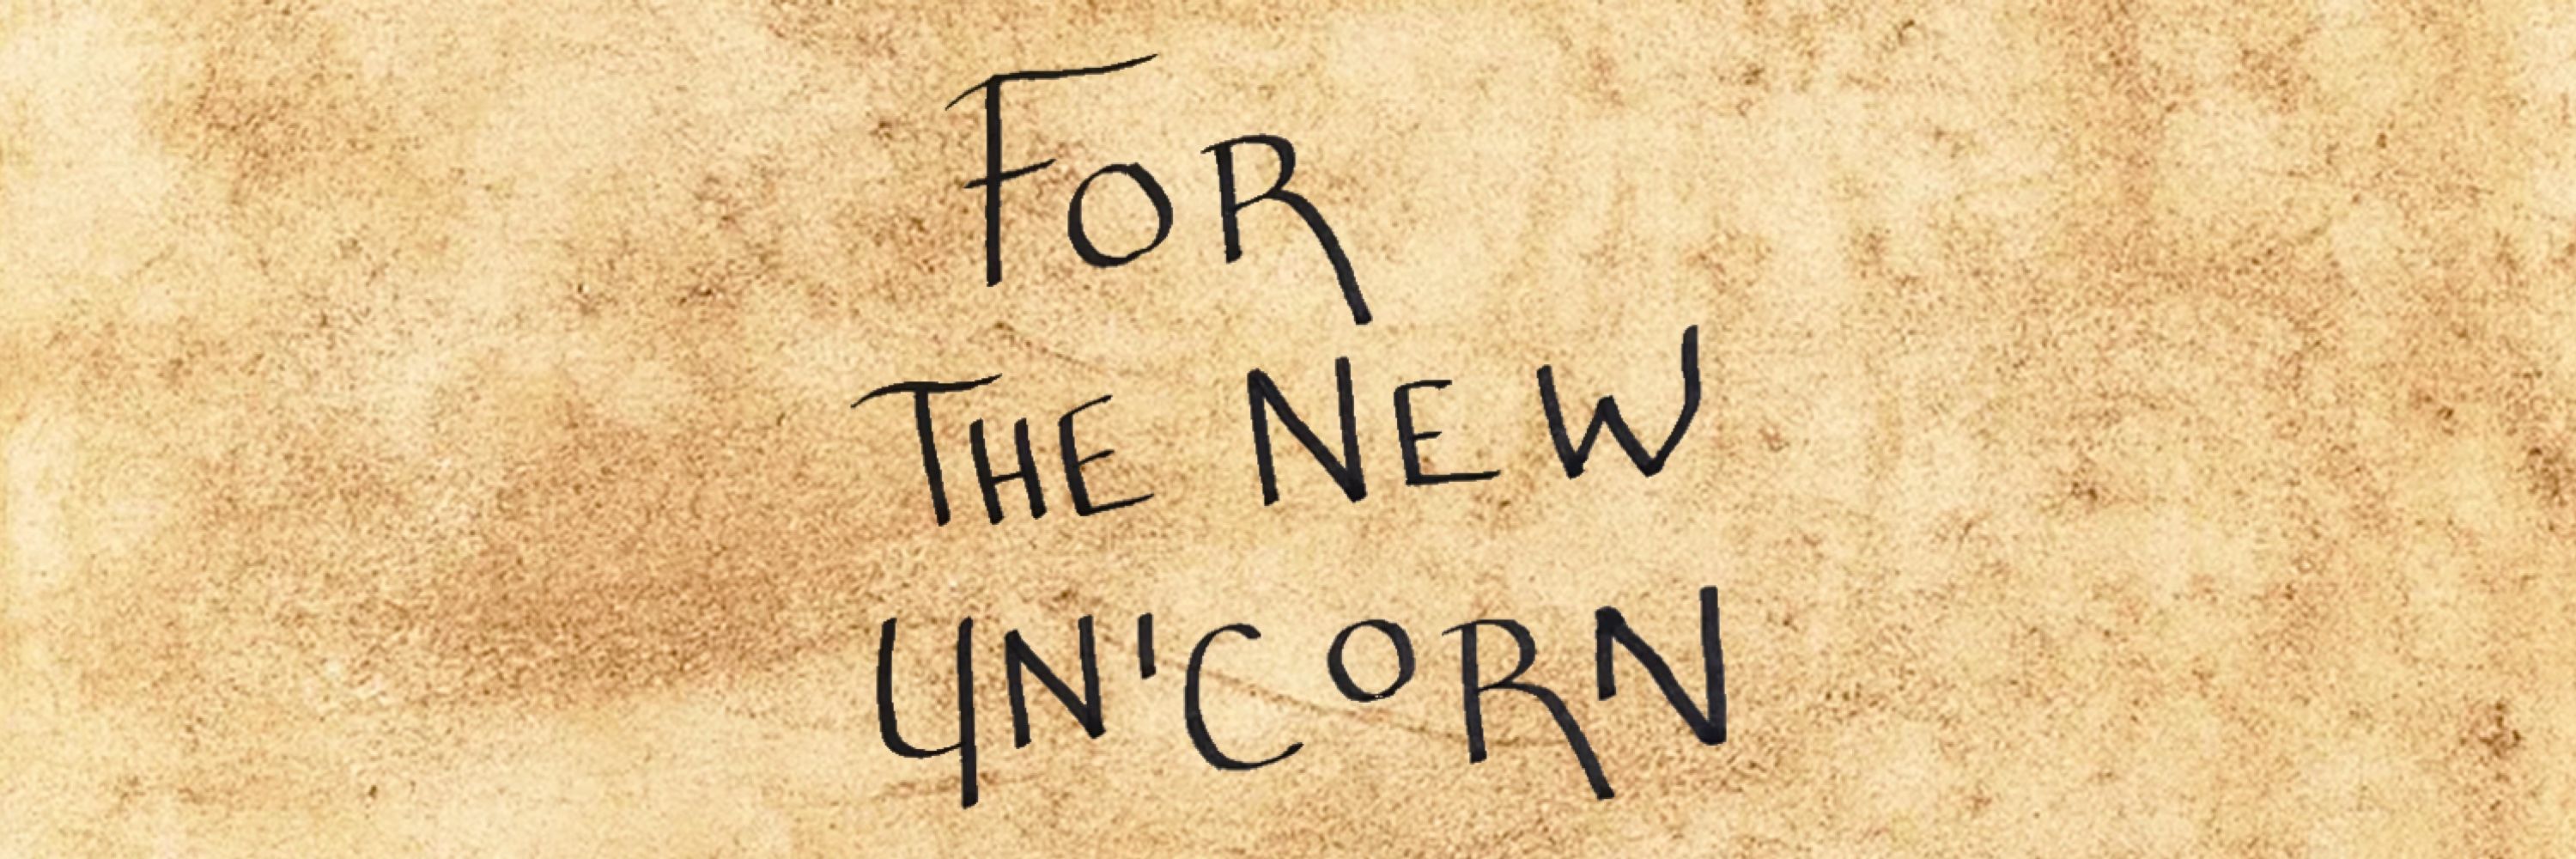 FOR
THE NEW
UNICORN